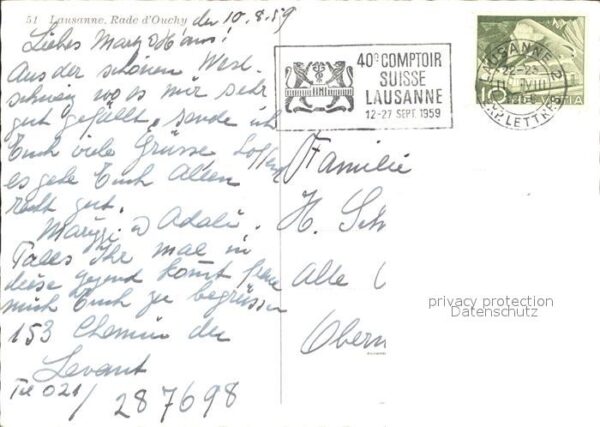 51 Lausanne. Rade d'Ouchy
den 10.8.59
Liebes Mary, Hans!
Aus der schönen West-
schweiz wo es mir sehr
gut gefällt, sende ich
Euch viele Grüsse. Hoffe,
es gehe Euch Allen
recht gut.
Maryzi & Adali.
Falls Ihr mal in
diese Gegend kommt freue
mich Euch zu begrüssen
153 Chemin du
Levant
Tel 021/
287698
40e COMPTOIR
SUISSE
LAUSANNE
12-27 SEPT. 1959
LAUSANNE 2
22-23
EXP. LETTRES
HELVETIA
Familie
H. Sch
Alle
Obern
privacy protection
Datenschutz